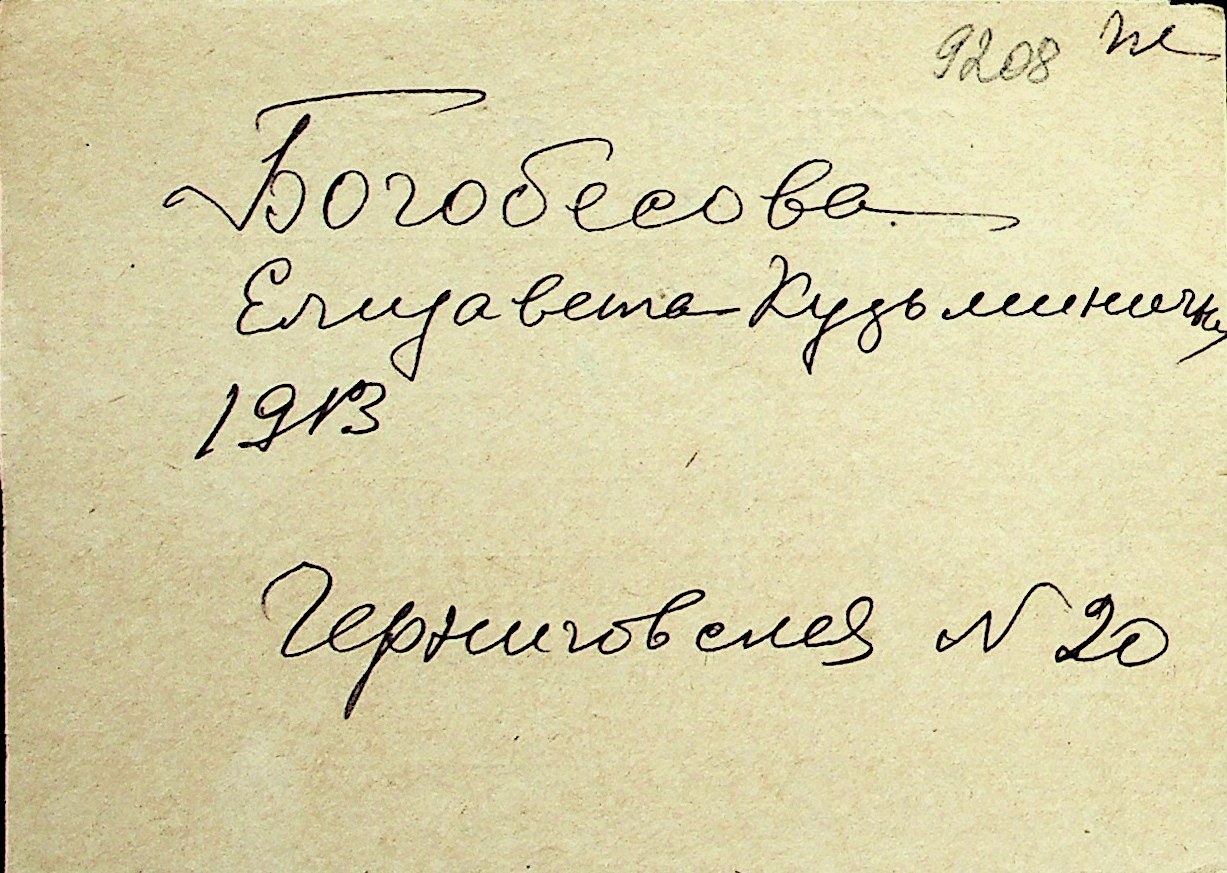 9208
Богобесова
Елизавета Кузьминична
1913
Черниговская N 20